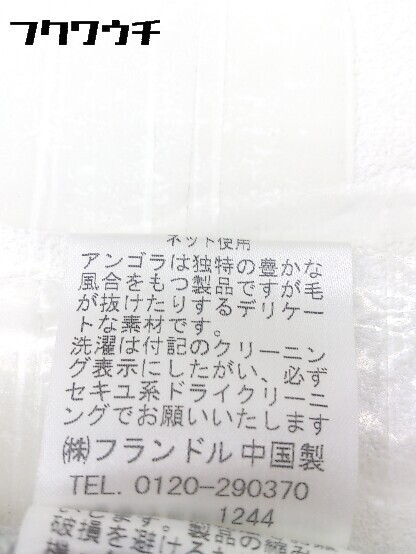 フクウクチ
ネット使用
アンゴラは独特の豊かな
風合をもつ製品ですが毛
が抜けたりするデリケー
トな素材です。
洗濯は付記のクリーニン
グ表示にしたがい、必ず
セキユ系ドライクリーニ
ングでお願いいたします
㈱フランドル 中国製
TEL. 0120-290370
1244